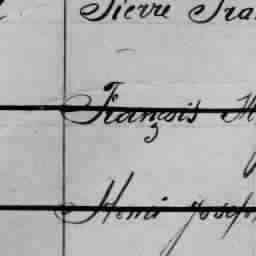 Pierre Fra
François H
Henri Joseph